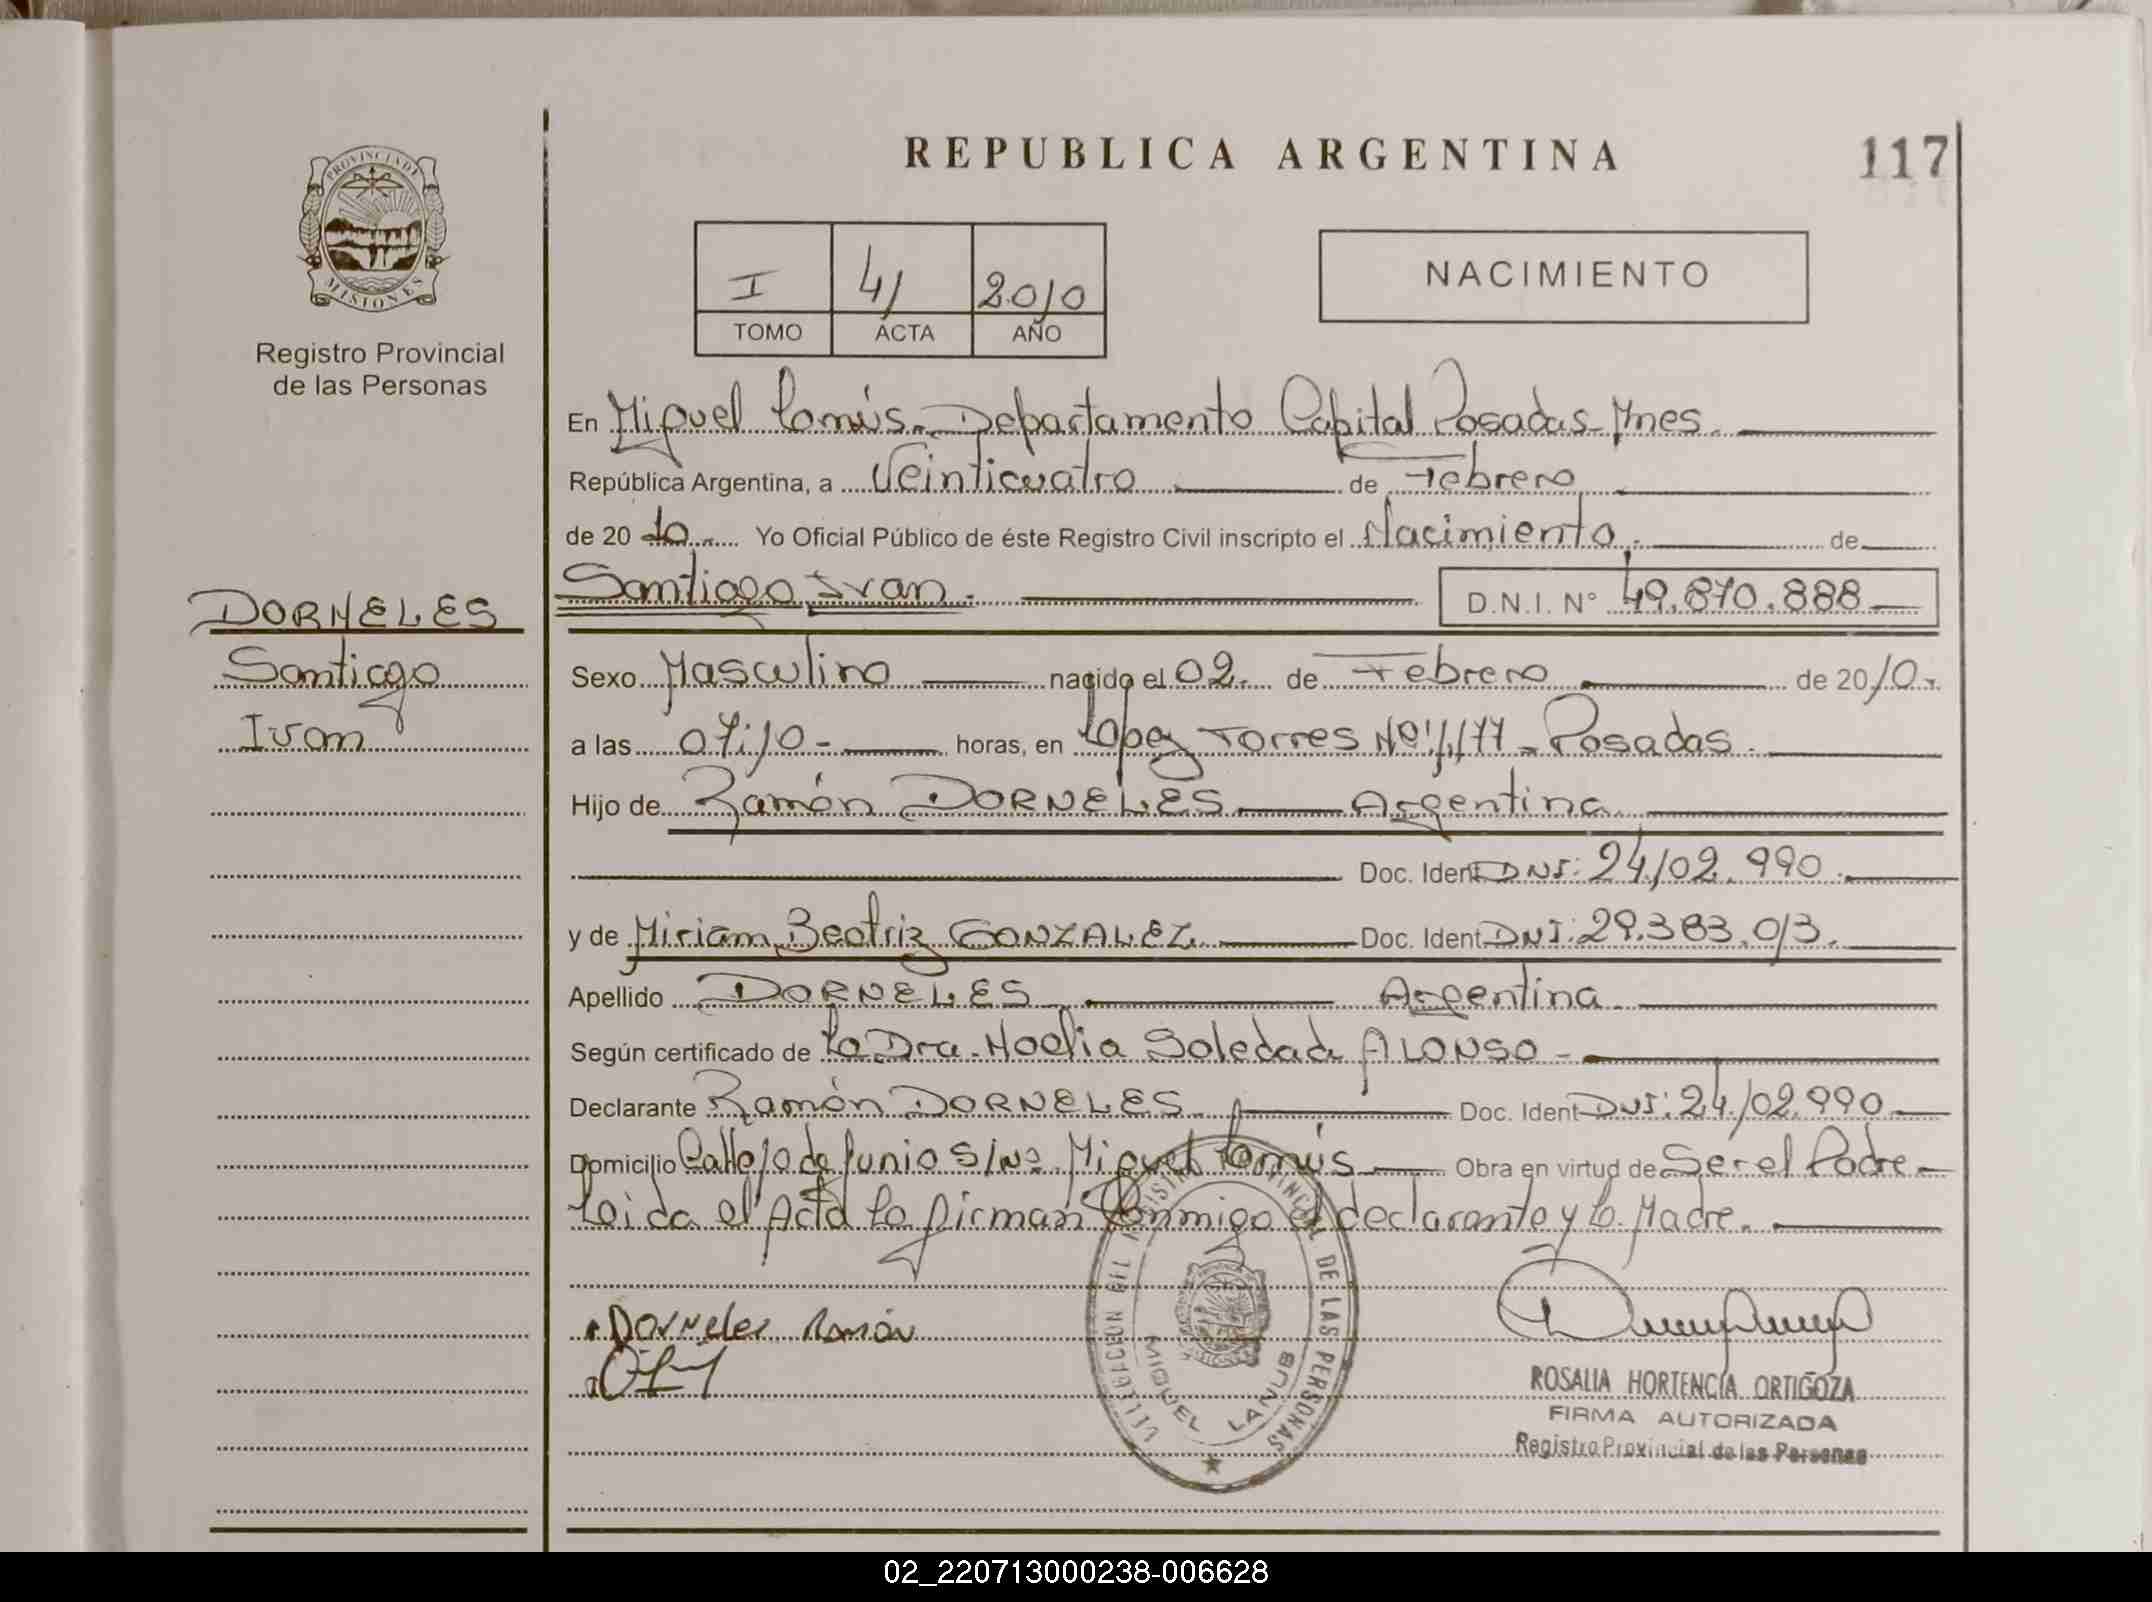 REPUBLICA ARGENTINA
117
PROVINCIA DE
MISIONES
Registro Provincial
de las Personas
I 41 2010
TOMO ACTA AÑO
NACIMIENTO
En Miguel Lanús. Departamento Capital Posadas-Mnes.
República Argentina, a Veinticuatro de Febrero
de 20 10.- Yo Oficial Público de éste Registro Civil inscripto el Nacimiento.- de
Santiago Ivan.- D.N.I. N° 49.870.888
DORNELES
Santiago
Ivan
Sexo Masculino nacido el 02.- de Febrero de 20 10.-
a las 07:10- horas, en López Torres Nº 1.177 - Posadas.
Hijo de Ramón DORNELES Argentina
Doc. Ident DNI: 24.102.990.-
y de Miriam Beatriz GONZALEZ. Doc. Ident DNI: 29.383.013.
Apellido DORNELES Argentina
Según certificado de La Dra. Noelia Soledad ALONSO -
Declarante Ramón DORNELES Doc. Ident DNI: 24.102.990
Domicilio Calle 10 de Junio S/Nº Miguel Lanús Obra en virtud de Ser el Padre-
Leida el Acta la firman Conmigo el declarante y la Madre.
Dorneles Ramón
DELEGACION DEL REGISTRO PROVINCIAL DE LAS PERSONAS
MIGUEL LANUS
ROSALIA HORTENCIA ORTIGOZA
FIRMA AUTORIZADA
Registro Provincial de las Personas
02_220713000238-006628